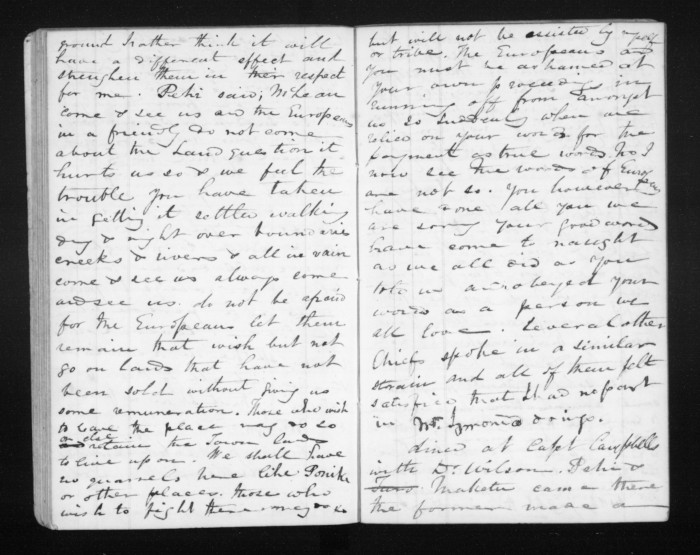 ground I rather think it will
have a different effect and
strengthen them in their respect
for me. Pehi said, McLean
come & see us and the Europeans
in a friendly do not come
about the Land question it
hurts us so & we feel the
trouble you have taken
in getting it settled walking
day & night over boundaries
creeks & rivers & all in vain
come & see us always come
and see us. do not be afraid
for the Europeans let them
remain that wish but not
go on lands that have not
been sold without giving us
some remuneration. Those who wish
to leave the place may do so
or else retain the Town land
to live upon. We shall have
no quarrels here like Poneke
or other places. those who
wish to fight there may do so
but will not be assisted by my
or tribe. The Europeans and
you must be ashamed at
your own proceedings in
running off from amongst
us so suddenly when we
relied on your word for the
payment as true words. No I
now see the words of Europeans
are not so. You however
have done all you we
are sorry your good words
have come to naught
as we all did as you
told us & acknowledged your
words as a person we
all love. Several other
Chiefs spoke in a similar
strain and all of them felt
satisfied that I had no part
in Mr. Symonds doings.
dined at Capt Campbells
with Dr. Wilson. Pehi &
Turo. Maketu came there
the former made a